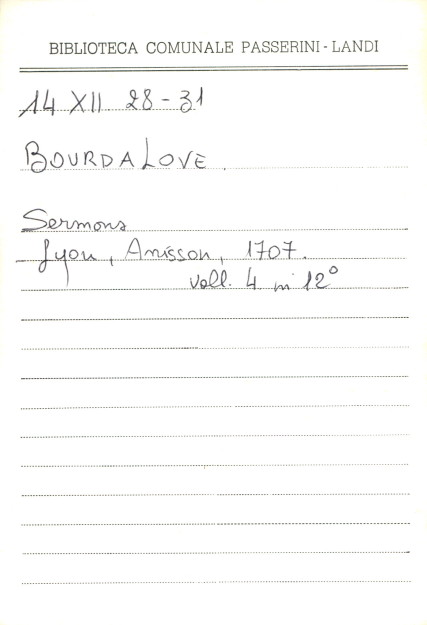 BIBLIOTECA COMUNALE PASSERINI - LANDI
14 XII 28-31
BOURDALOVE.
Sermons
Lyon, Anisson, 1707.
voll. 4 in 12°